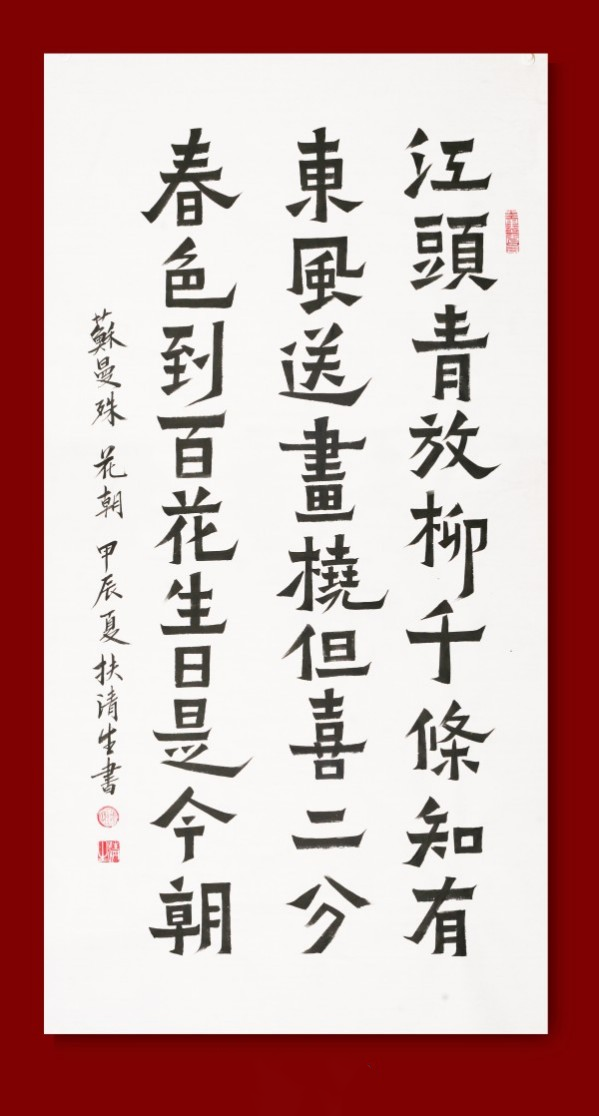 江頭青放柳千條知有
東風送畫橈但喜二分
春色到百花生日是今朝
蘇曼殊 花朝 甲辰夏 扶清生書